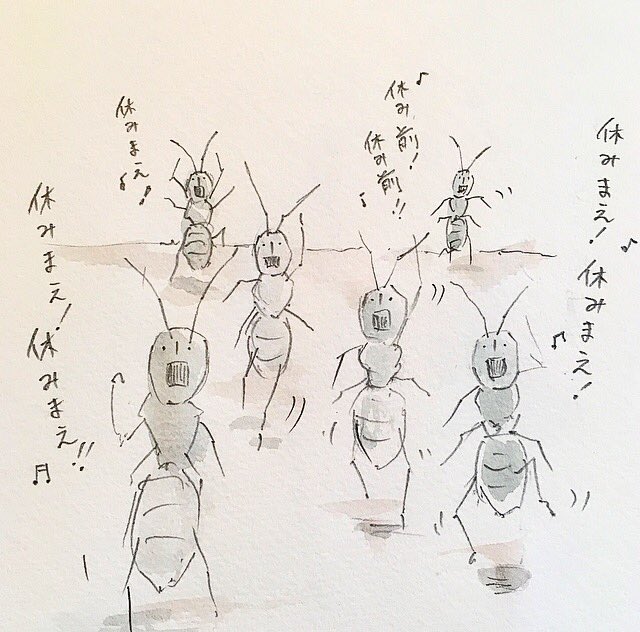 休みまえ!休みまえ!
休み前!
休み前!!
休みまえ!
休みまえ!休みまえ!!